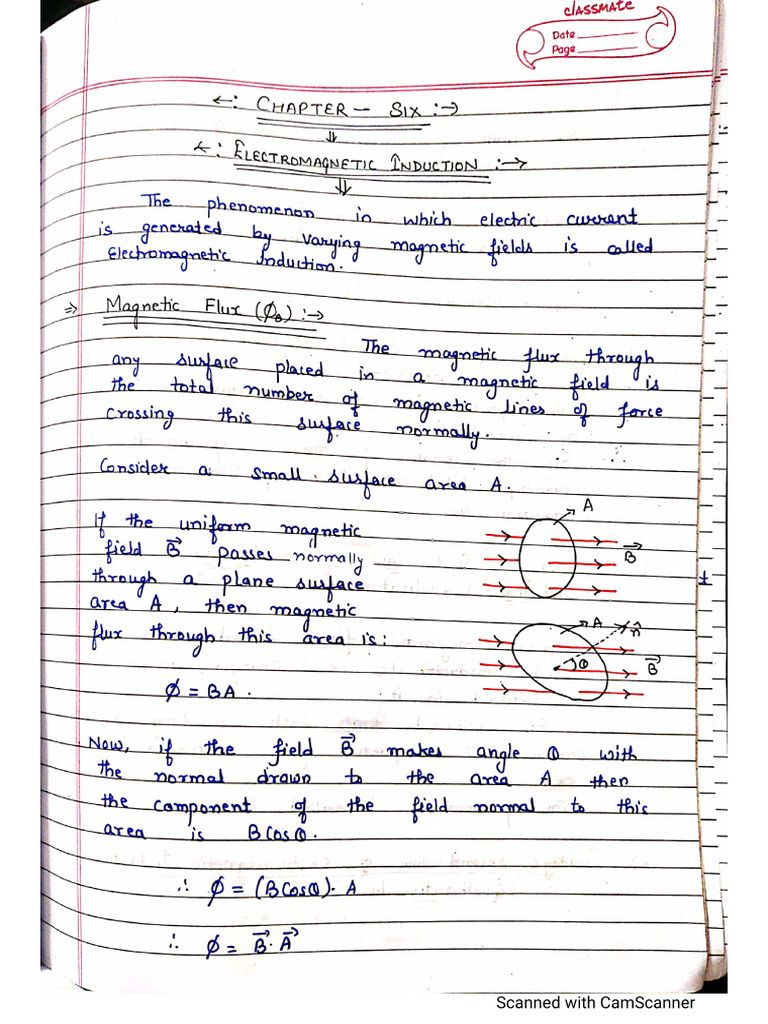 classmate
Date
Page
←: CHAPTER – SIX :→
⇓
←: ELECTROMAGNETIC INDUCTION :→
⇓
The phenomenon in which electric current
is generated by varying magnetic fields is called
Electromagnetic Induction.
⇒ Magnetic Flux (ϕB) :→
The magnetic flux through
any surface placed in a magnetic field is
the total number of magnetic lines of force
crossing this surface normally.
Consider a small surface area A.
If the uniform magnetic
field B⃗ passes normally
through a plane surface
area A, then magnetic
flux through this area is:
ϕ = BA.
A
B⃗
A
n̂
θ
B⃗
Now, if the field B⃗ makes angle θ with
the normal drawn to the area A then
the component of the field normal to this
area is BCosθ.
∴ ϕ = (BCosθ). A
∴ ϕ = B⃗. A⃗
Scanned with CamScanner